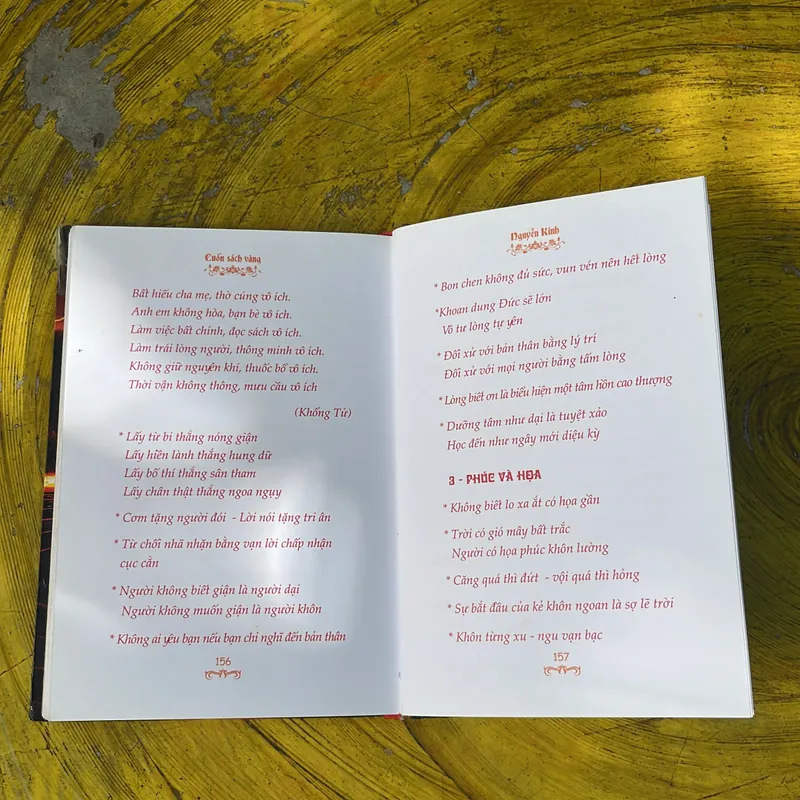 Cuốn sách vàng
Bất hiếu cha mẹ, thờ cúng vô ích.
Anh em không hòa, bạn bè vô ích.
Làm việc bất chính, đọc sách vô ích.
Làm trái lòng người, thông minh vô ích.
Không giữ nguyên khí, thuốc bổ vô ích.
Thời vận không thông, mưu cầu vô ích
(Khổng Tử)
* Lấy từ bi thắng nóng giận
Lấy hiền lành thắng hung dữ
Lấy bố thí thắng sân tham
Lấy chân thật thắng ngoa ngụy
* Cơm tặng người đói - Lời nói tặng tri ân
* Từ chối nhã nhặn bằng vạn lời chấp nhận
cục cằn
* Người không biết giận là người dại
Người không muốn giận là người khôn
* Không ai yêu bạn nếu bạn chỉ nghĩ đến bản thân
156
Nguyễn Kính
* Bon chen không đủ sức, vun vén nên hết lòng
*Khoan dung Đức sẽ lớn
Vô tư lòng tự yên
* Đối xử với bản thân bằng lý trí
Đối xử với mọi người bằng tấm lòng
* Lòng biết ơn là biểu hiện một tâm hồn cao thượng
* Dưỡng tâm như dại là tuyệt xảo
Học đến như ngây mới diệu kỳ
3 - PHÚC VÀ HỌA
* Không biết lo xa ắt có họa gần
* Trời có gió mây bất trắc
Người có họa phúc khôn lường
* Căng quá thì đứt - vội quá thì hỏng
* Sự bắt đầu của kẻ khôn ngoan là sợ lẽ trời
* Khôn từng xu - ngu vạn bạc
157